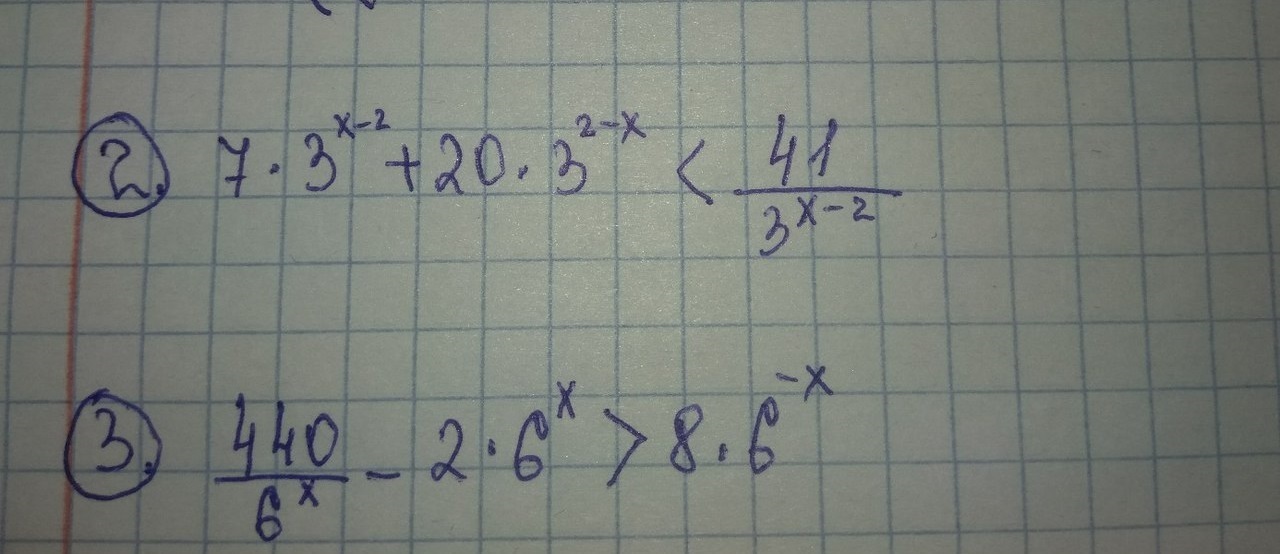 2. 7 · 3^{x-2} + 20 · 3^{2-x} < \frac{41}{3^{x-2}}
3. \frac{440}{6^x} - 2 · 6^x > 8 · 6^{-x}